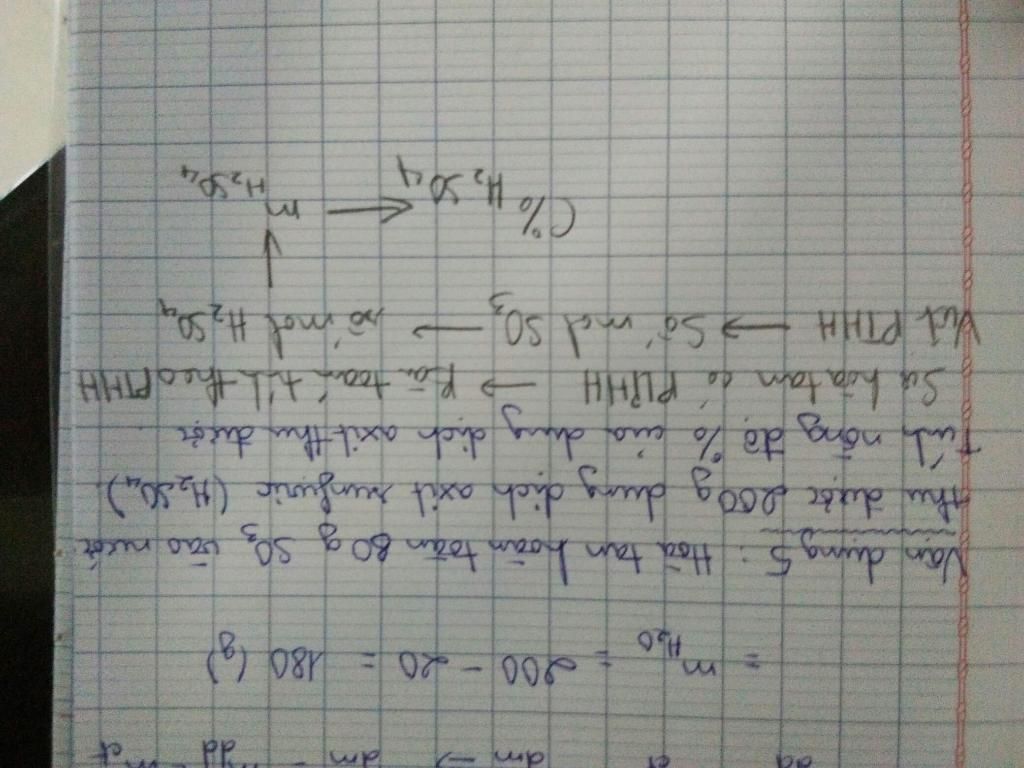 dd ct dm → dm = dd - mct
= m H₂O = 200 - 20 = 180 (g)
Vận dụng 5: Hoà tan hoàn toàn 80 g SO₃ vào nước
thu được 200 g dung dịch axit sunfuric (H₂SO₄).
Tính nồng độ % của dung dịch axit thu được.
Sự hòa tan có PƯHH → Bài toán tính theo PTHH
Viết PTHH → Số mol SO₃ → số mol H₂SO₄
↓
C% H₂SO₄ ← m H₂SO₄